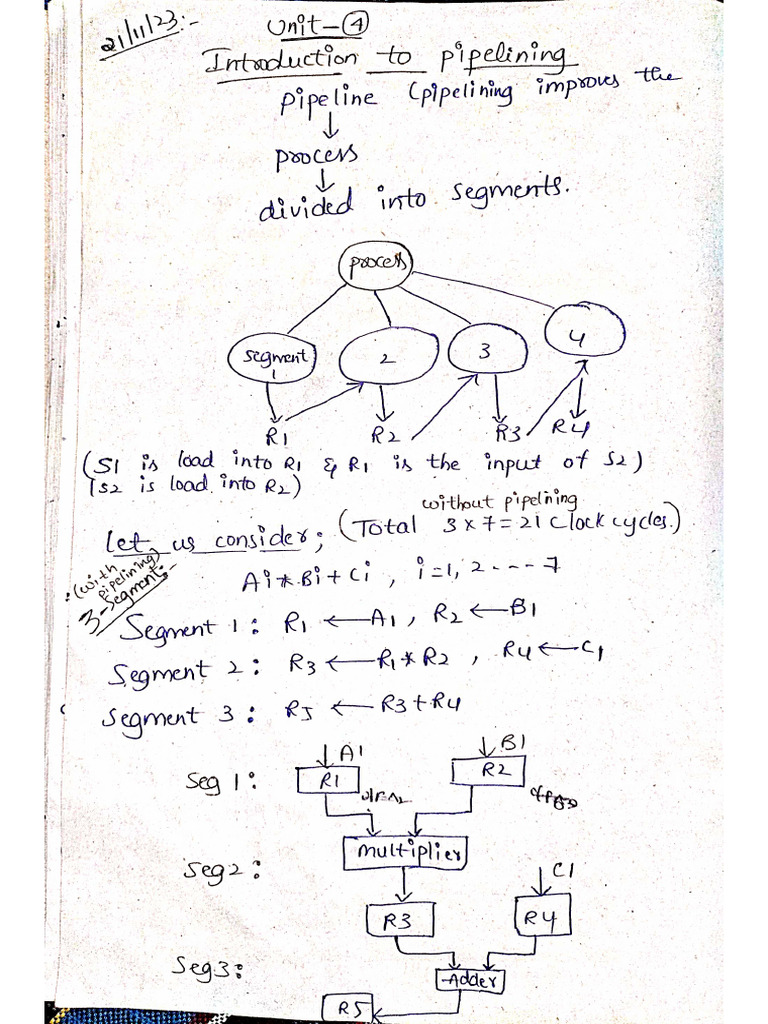 21/11/23:-
Unit-④
Introduction to pipelining
pipeline (pipelining improves the
process
divided into segments.
process
segment 1
2
3
4
R1
R2
R3
R4
(S1 is load into R1 & R1 is the input of S2)
(S2 is load into R2)
without pipelining
Let us consider; (Total 3 x 7 = 21 clock cycles.)
Ai * Bi + Ci , i=1, 2 ---- 7
(with pipelining)
3-Segment:-
Segment 1: R1 ← A1, R2 ← B1
Segment 2: R3 ← R1 * R2 , R4 ← C1
Segment 3: R5 ← R3 + R4
A1
B1
Seg 1:
R1
R2
multiplier
Seg2:
C1
R3
R4
Seg3:
Adder
R5